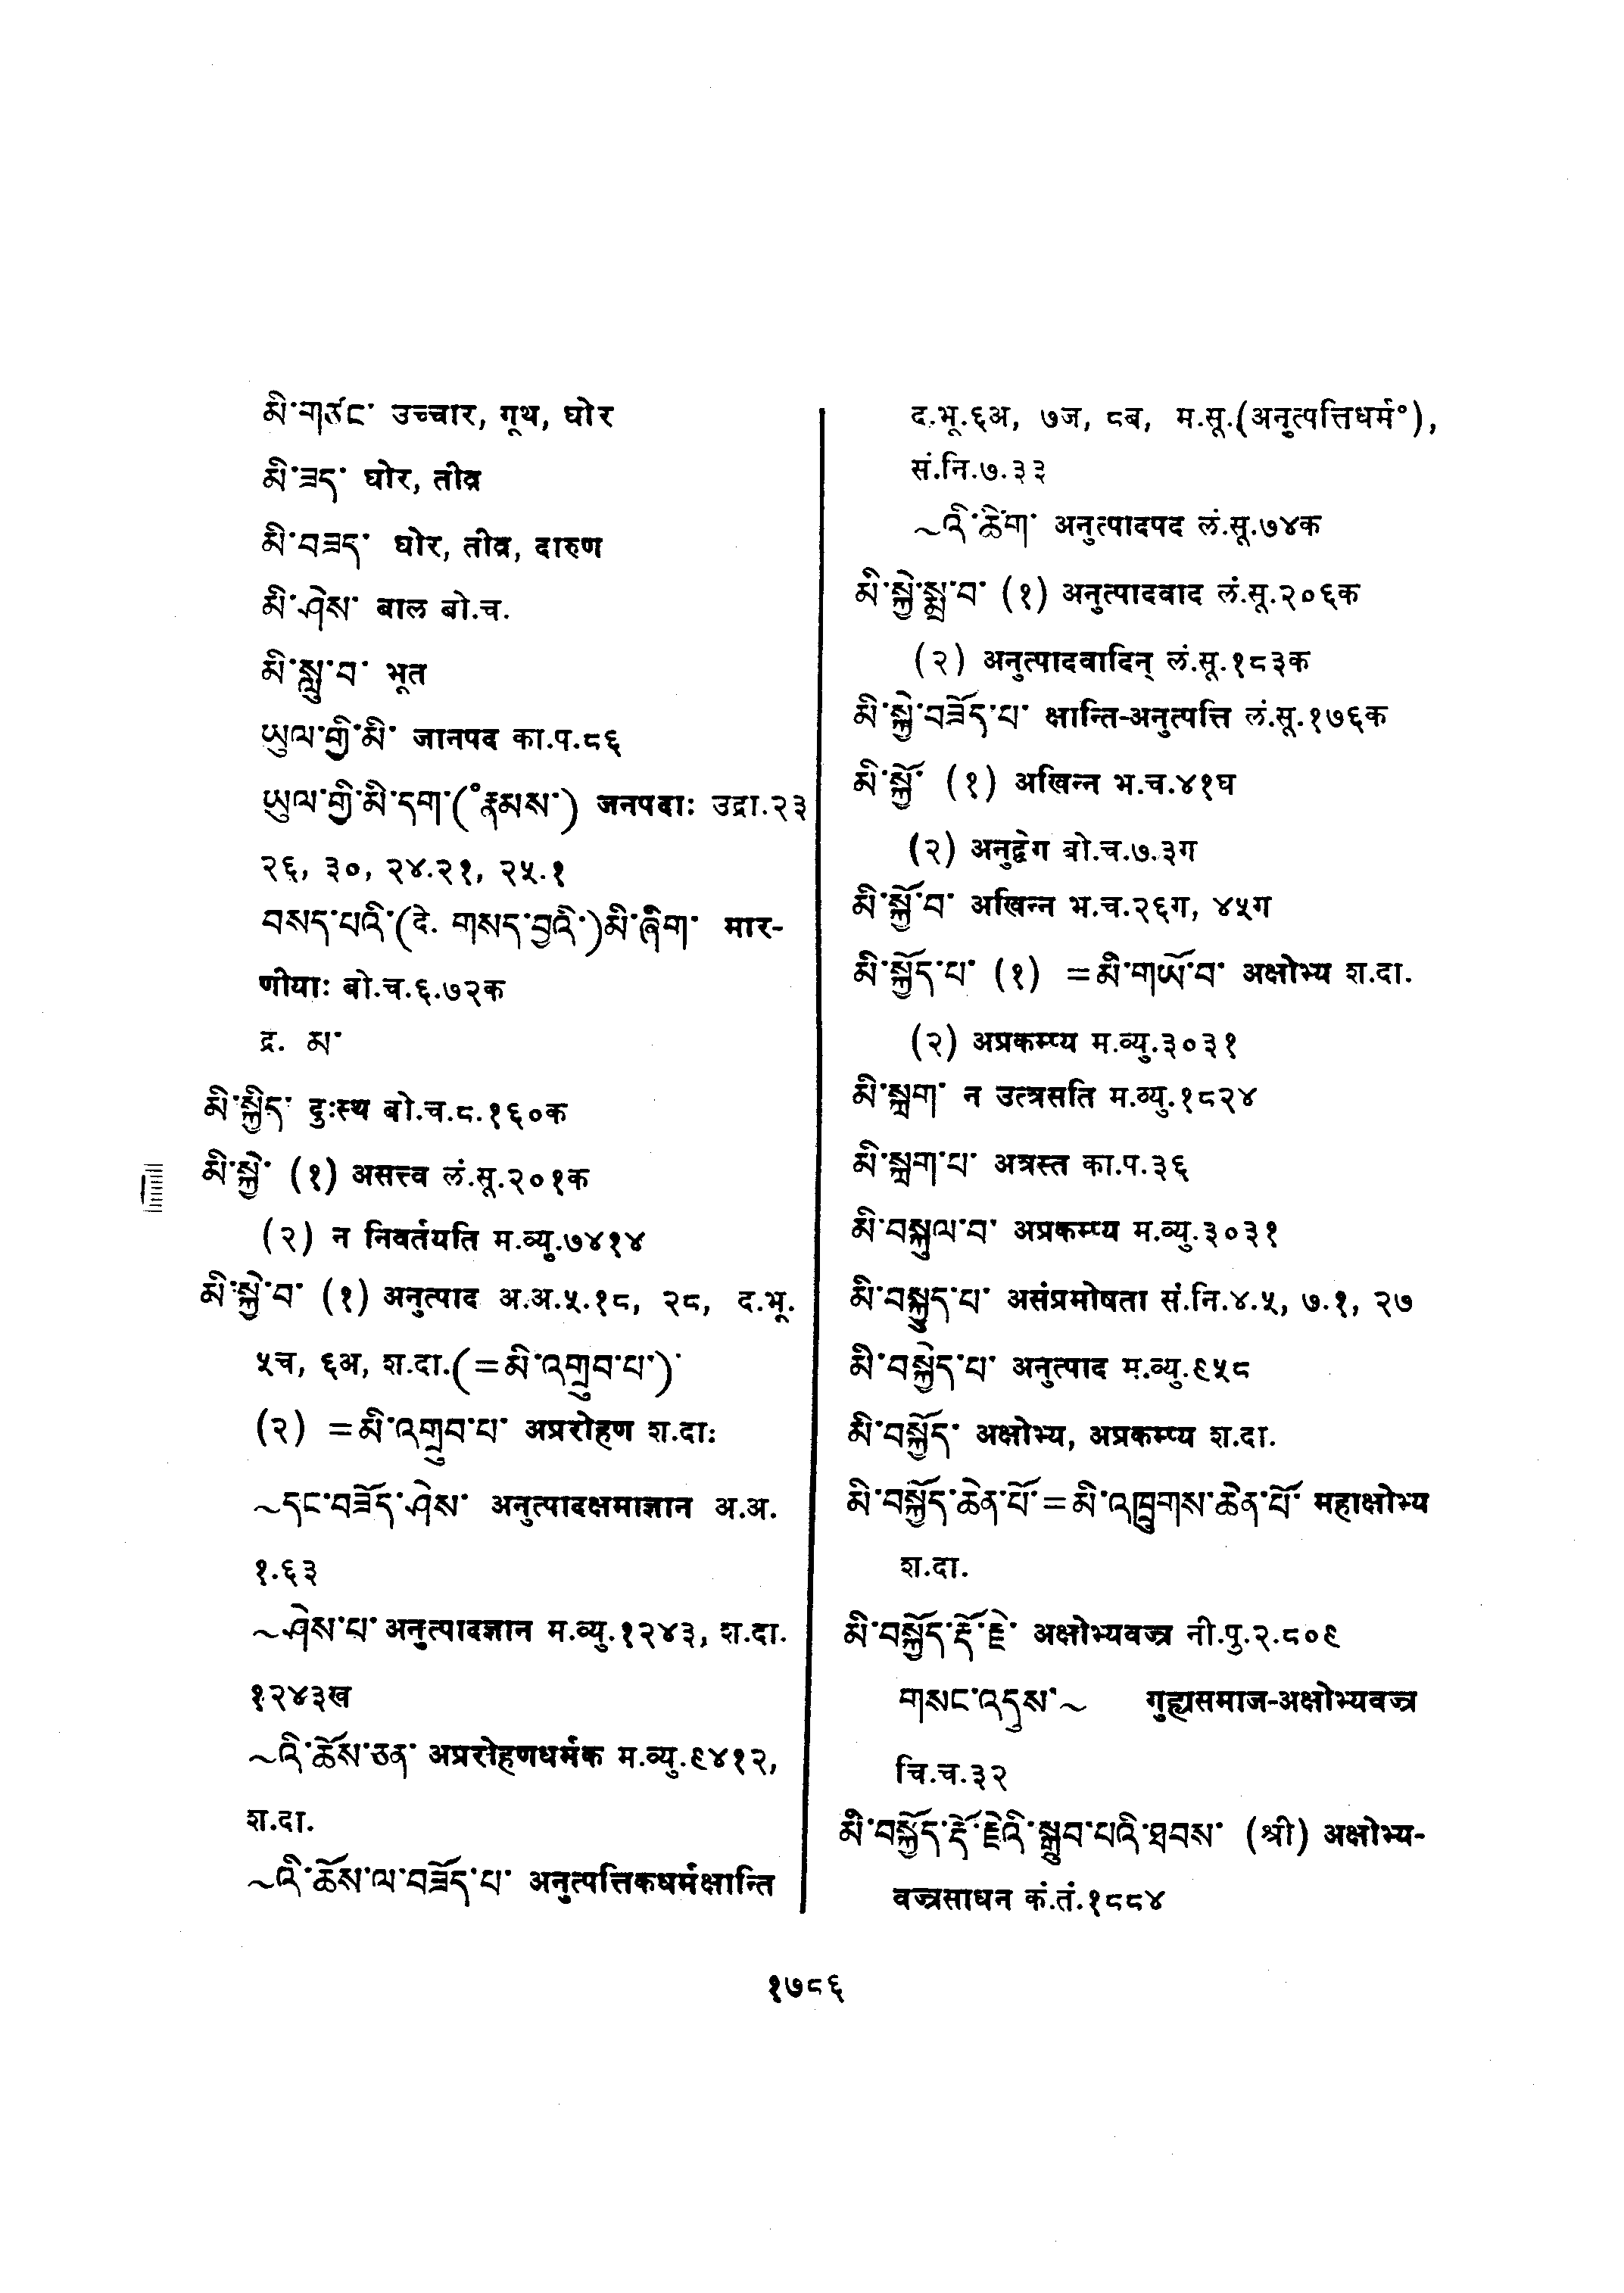 མི་གཙང་ उच्चार, गूथ, घोर
མི་ཟད་ घोर, तीव्र
མི་བཟད་ घोर, तीव्र, दारुण
མི་ཤེས་ बाल बो.च.
མི་སླུ་བ་ भूत
ཡུལ་གྱི་མི་ जानपद का.प.८६
ཡུལ་གྱི་མི་དག་(°རྣམས་) जनपदाः उद्रा.२३
२६, ३०, २४.२१, २५.१
བསད་པའི་(དེ. གསད་བྱའི་)མི་ཞིག་ मार-
णीयाः बो.च.६.७२क
द्र. མ་
མི་སྐྱིད་ दुःस्थ बो.च.८.१६०क
མི་སྐྱེ་ (१) असत्त्व लं.सू.२०१क
(२) न निवर्तयति म.व्यु.७४१४
མི་སྐྱེ་བ་ (१) अनुत्पाद अ.अ.५.१८, २८, द.भू.
५च, ६अ, श.दा.(=མི་འགྲུབ་པ་)
(२) =མི་འགྲུབ་པ་ अप्ररोहण श.दा:
~དང་བཟོད་ཤེས་ अनुत्पादक्षमाज्ञान अ.अ.
१.६३
~ཤེས་པ་ अनुत्पादज्ञान म.व्यु.१२४३, श.दा.
१२४३ख
~འི་ཆོས་ཅན་ अप्ररोहणधर्मक म.व्यु.९४१२,
श.दा.
~འི་ཆོས་ལ་བཟོད་པ་ अनुत्पत्तिकधर्मक्षान्ति
द.भू.६अ, ७ज, ८ब, म.सू.(अनुत्पत्तिधर्म°),
सं.नि.७.३३
~འི་ཚིག་ अनुत्पादपद लं.सू.७४क
མི་སྐྱེ་སྨྲ་བ་ (१) अनुत्पादवाद लं.सू.२०६क
(२) अनुत्पादवादिन् लं.सू.१८३क
མི་སྐྱེ་བཟོད་པ་ क्षान्ति-अनुत्पत्ति लं.सू.१७६क
མི་སྐྱོ་ (१) अखिन्न भ.च.४१घ
(२) अनुद्वेग बो.च.७.३ग
མི་སྐྱོ་བ་ अखिन्न भ.च.२६ग, ४५ग
མི་སྐྱོད་པ་ (१) =མི་གཡོ་བ་ अक्षोभ्य श.दा.
(२) अप्रकम्प्य म.व्यु.३०३१
མི་སྐྲག་ न उत्त्रसति म.व्यु.१८२४
མི་སྐྲག་པ་ अत्रस्त का.प.३६
མི་བསྐུལ་བ་ अप्रकम्प्य म.व्यु.३०३१
མི་བསྐྱུད་པ་ असंप्रमोषता सं.नि.४.५, ७.१, २७
མི་བསྐྱེད་པ་ अनुत्पाद म.व्यु.९५८
མི་བསྐྱོད་ अक्षोभ्य, अप्रकम्प्य श.दा.
མི་བསྐྱོད་ཆེན་པོ་=མི་འཁྲུགས་ཆེན་པོ་ महाक्षोभ्य
श.दा.
མི་བསྐྱོད་རྡོ་རྗེ་ अक्षोभ्यवज्र नी.पु.२.८०९
གསང་འདུས་~ गुह्यसमाज-अक्षोभ्यवज्र
चि.च.३२
མི་བསྐྱོད་རྡོ་རྗེའི་སྒྲུབ་པའི་ཐབས་ (श्री) अक्षोभ्य-
वज्रसाधन कं.तं.१८८४
१७८६